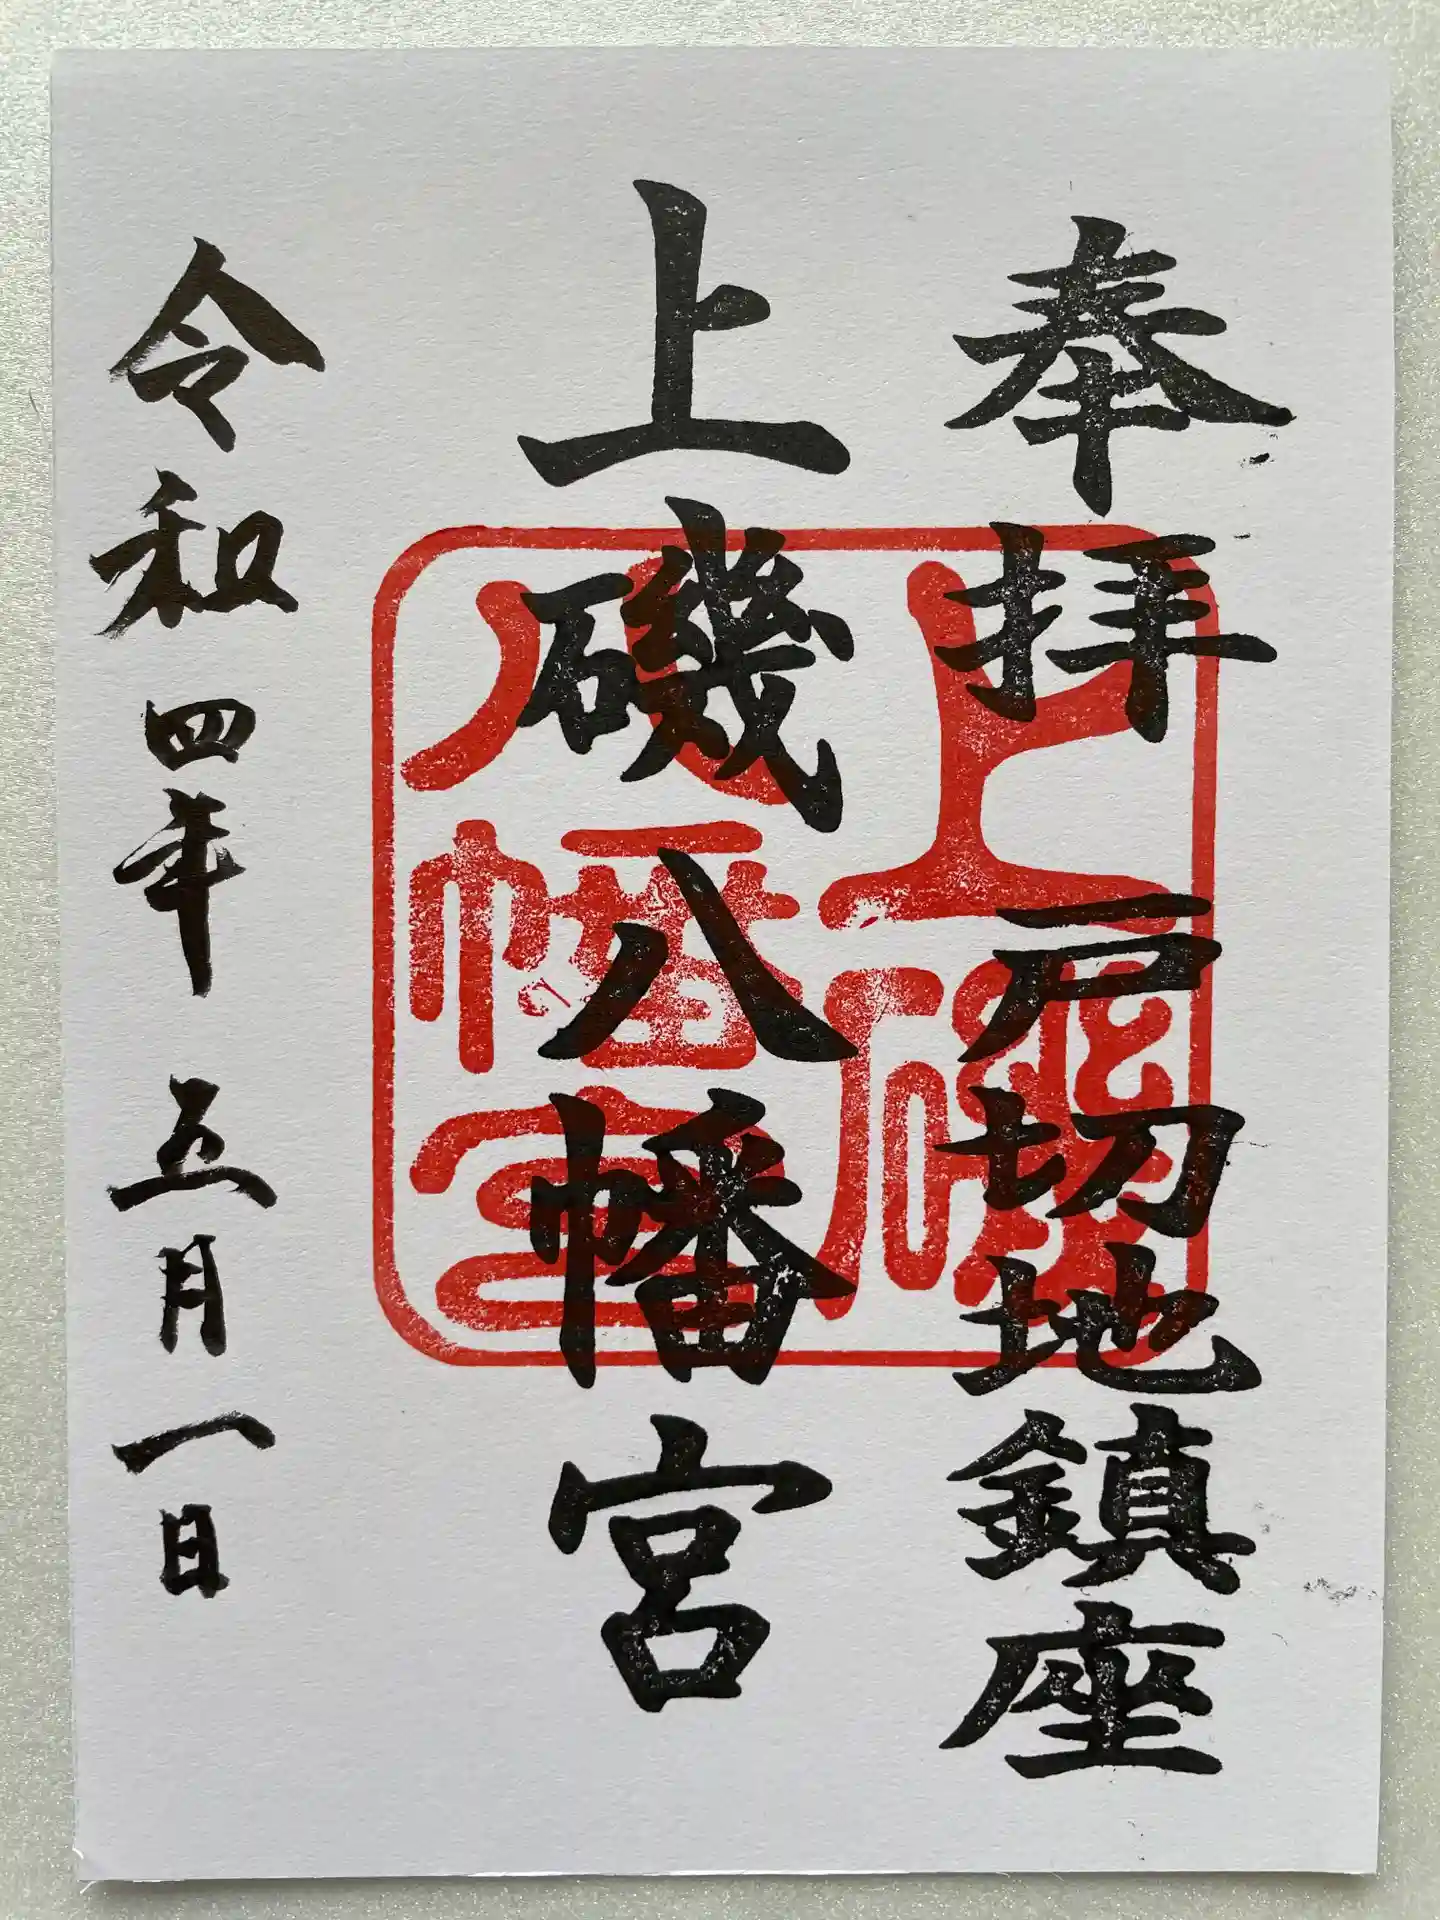 奉拝 戸切地鎮座
上磯八幡宮
上磯八幡宮
令和四年 五月一日